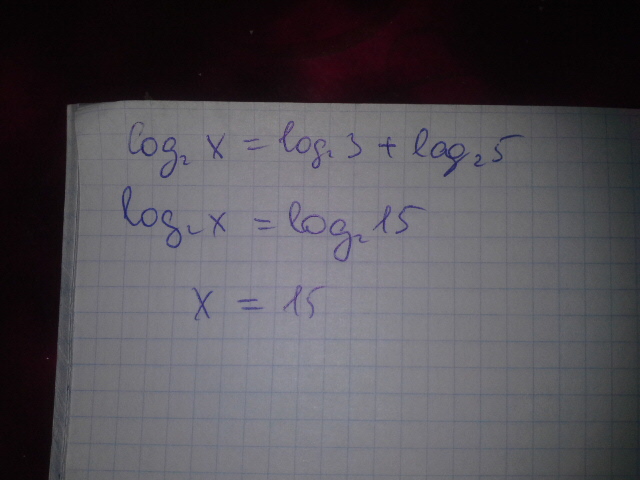 log₂ x = log₂ 3 + log₂ 5
log₂ x = log₂ 15
x = 15